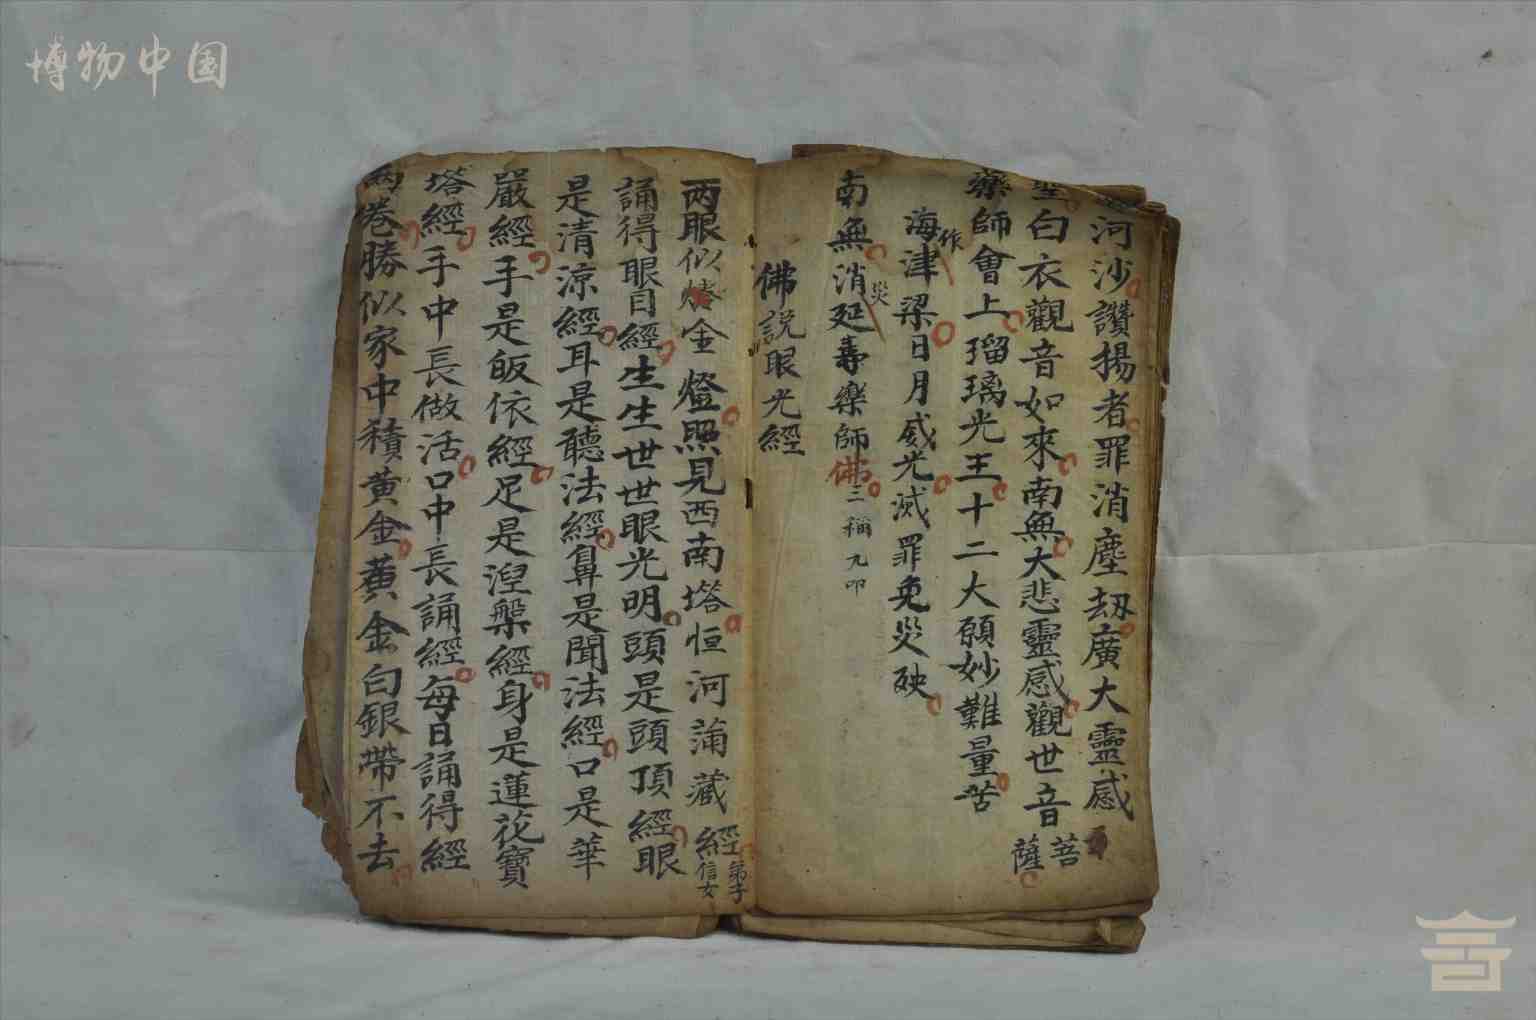 博物中国
河沙讚揚者罪消塵劫廣大靈感
聖白衣觀音如來南無大悲靈感觀世音菩薩
藥師會上瑠璃光王十二大願妙難量苦
海作津梁日月威光滅罪免災殃
南無消災延壽藥師佛三稱九叩
佛説眼光經
两眼似金燈照見西南塔恒河蒲藏經弟子信女
誦得眼目經生生世世眼光明頭是頭頂經眼
是清涼經耳是聽法經鼻是聞法經口是華
嚴經手是皈依經足是湼槃經身是蓮花寶
塔經手中長做活口中長誦經每日誦得經
两卷勝似家中積黄金黄金白銀帶不去